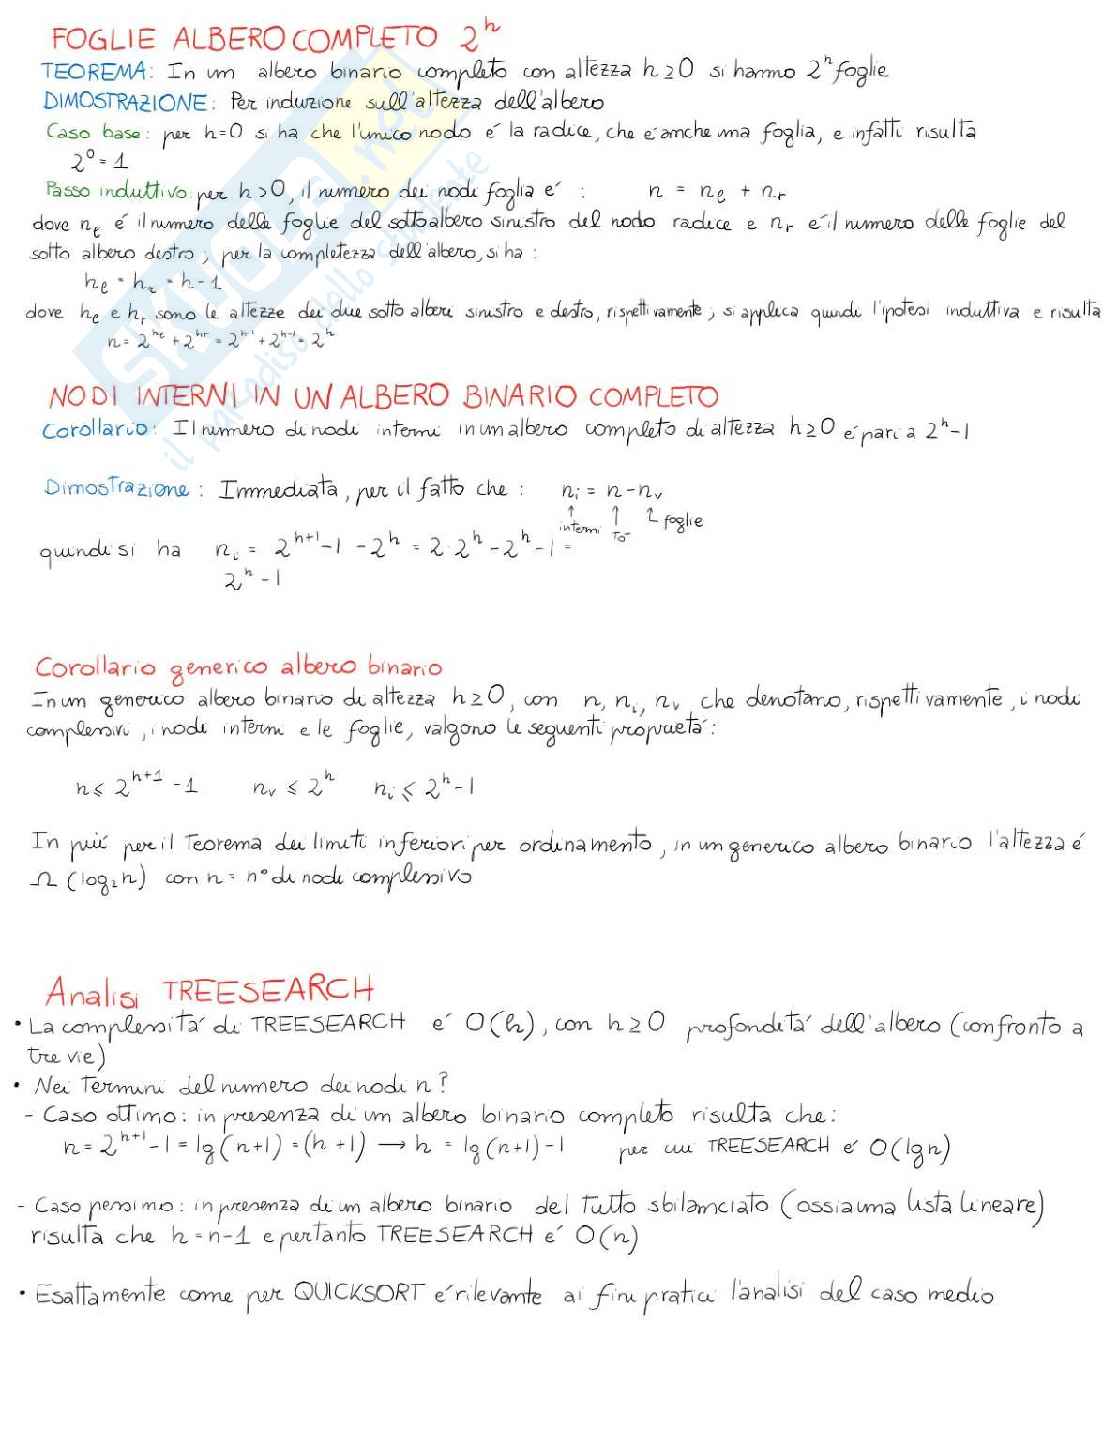 FOGLIE ALBERO COMPLETO 2^h
TEOREMA: In um albero binario completo con altezza h ≥ 0 si hanno 2^h foglie
DIMOSTRAZIONE: Per induzione sull'altezza dell'albero
Caso base: per h=0 si ha che l'unico nodo é la radice, che é anche una foglia, e infatti risulta
2^0 = 1
Passo induttivo: per h>0, il numero dei nodi foglia é : n = n_l + n_r
dove n_l é il numero delle foglie del sottoalbero sinistro del nodo radice e n_r é il numero delle foglie del
sotto albero destro; per la completezza dell'albero, si ha :
h_l = h_r = h-1
dove h_l e h_r sono le altezze dei due sotto alberi sinistro e destro, rispettivamente; si applica quindi l'ipotesi induttiva e risulta
n = 2^hl + 2^hr = 2^h-1 + 2^h-1 = 2^h
NODI INTERNI IN UN ALBERO BINARIO COMPLETO
Corollario: Il numero di nodi interni in un albero completo di altezza h ≥ 0 é pari a 2^h - 1
Dimostrazione : Immediata, per il fatto che : n_i = n - n_v
↑ interni ↑ To ↑ foglie
quindi si ha n_i = 2^h+1 - 1 - 2^h = 2·2^h - 2^h - 1 =
2^h - 1
Corollario generico albero binario
In un generico albero binario di altezza h ≥ 0, con n, n_i, n_v che denotano, rispettivamente, i nodi
complessivi, i nodi interni e le foglie, valgono le seguenti proprietá:
n ≤ 2^h+1 - 1 n_v ≤ 2^h n_i ≤ 2^h - 1
In piú per il Teorema dei limiti inferiori per ordinamento, in un generico albero binario l'altezza é
Ω (log_2 n) con n = n° di nodi complessivo
Analisi TREESEARCH
• La complessitá di TREESEARCH é O(h), con h ≥ 0 profonditá dell'albero (confronto a
tre vie)
• Nei Termini del numero dei nodi n?
- Caso ottimo: in presenza di um albero binario completo risulta che:
n = 2^h+1 - 1 = lg(n+1) = (h+1) → h = lg(n+1) - 1 per cui TREESEARCH é O(lg n)
- Caso pessimo: in presenza di un albero binario del Tutto sbilanciato (ossia una lista lineare)
risulta che h = n-1 e pertanto TREESEARCH é O(n)
• Esattamente come per QUICKSORT é rilevante ai fini pratici l'analisi del caso medio
SKUOLA.net
il paradiso dello studente